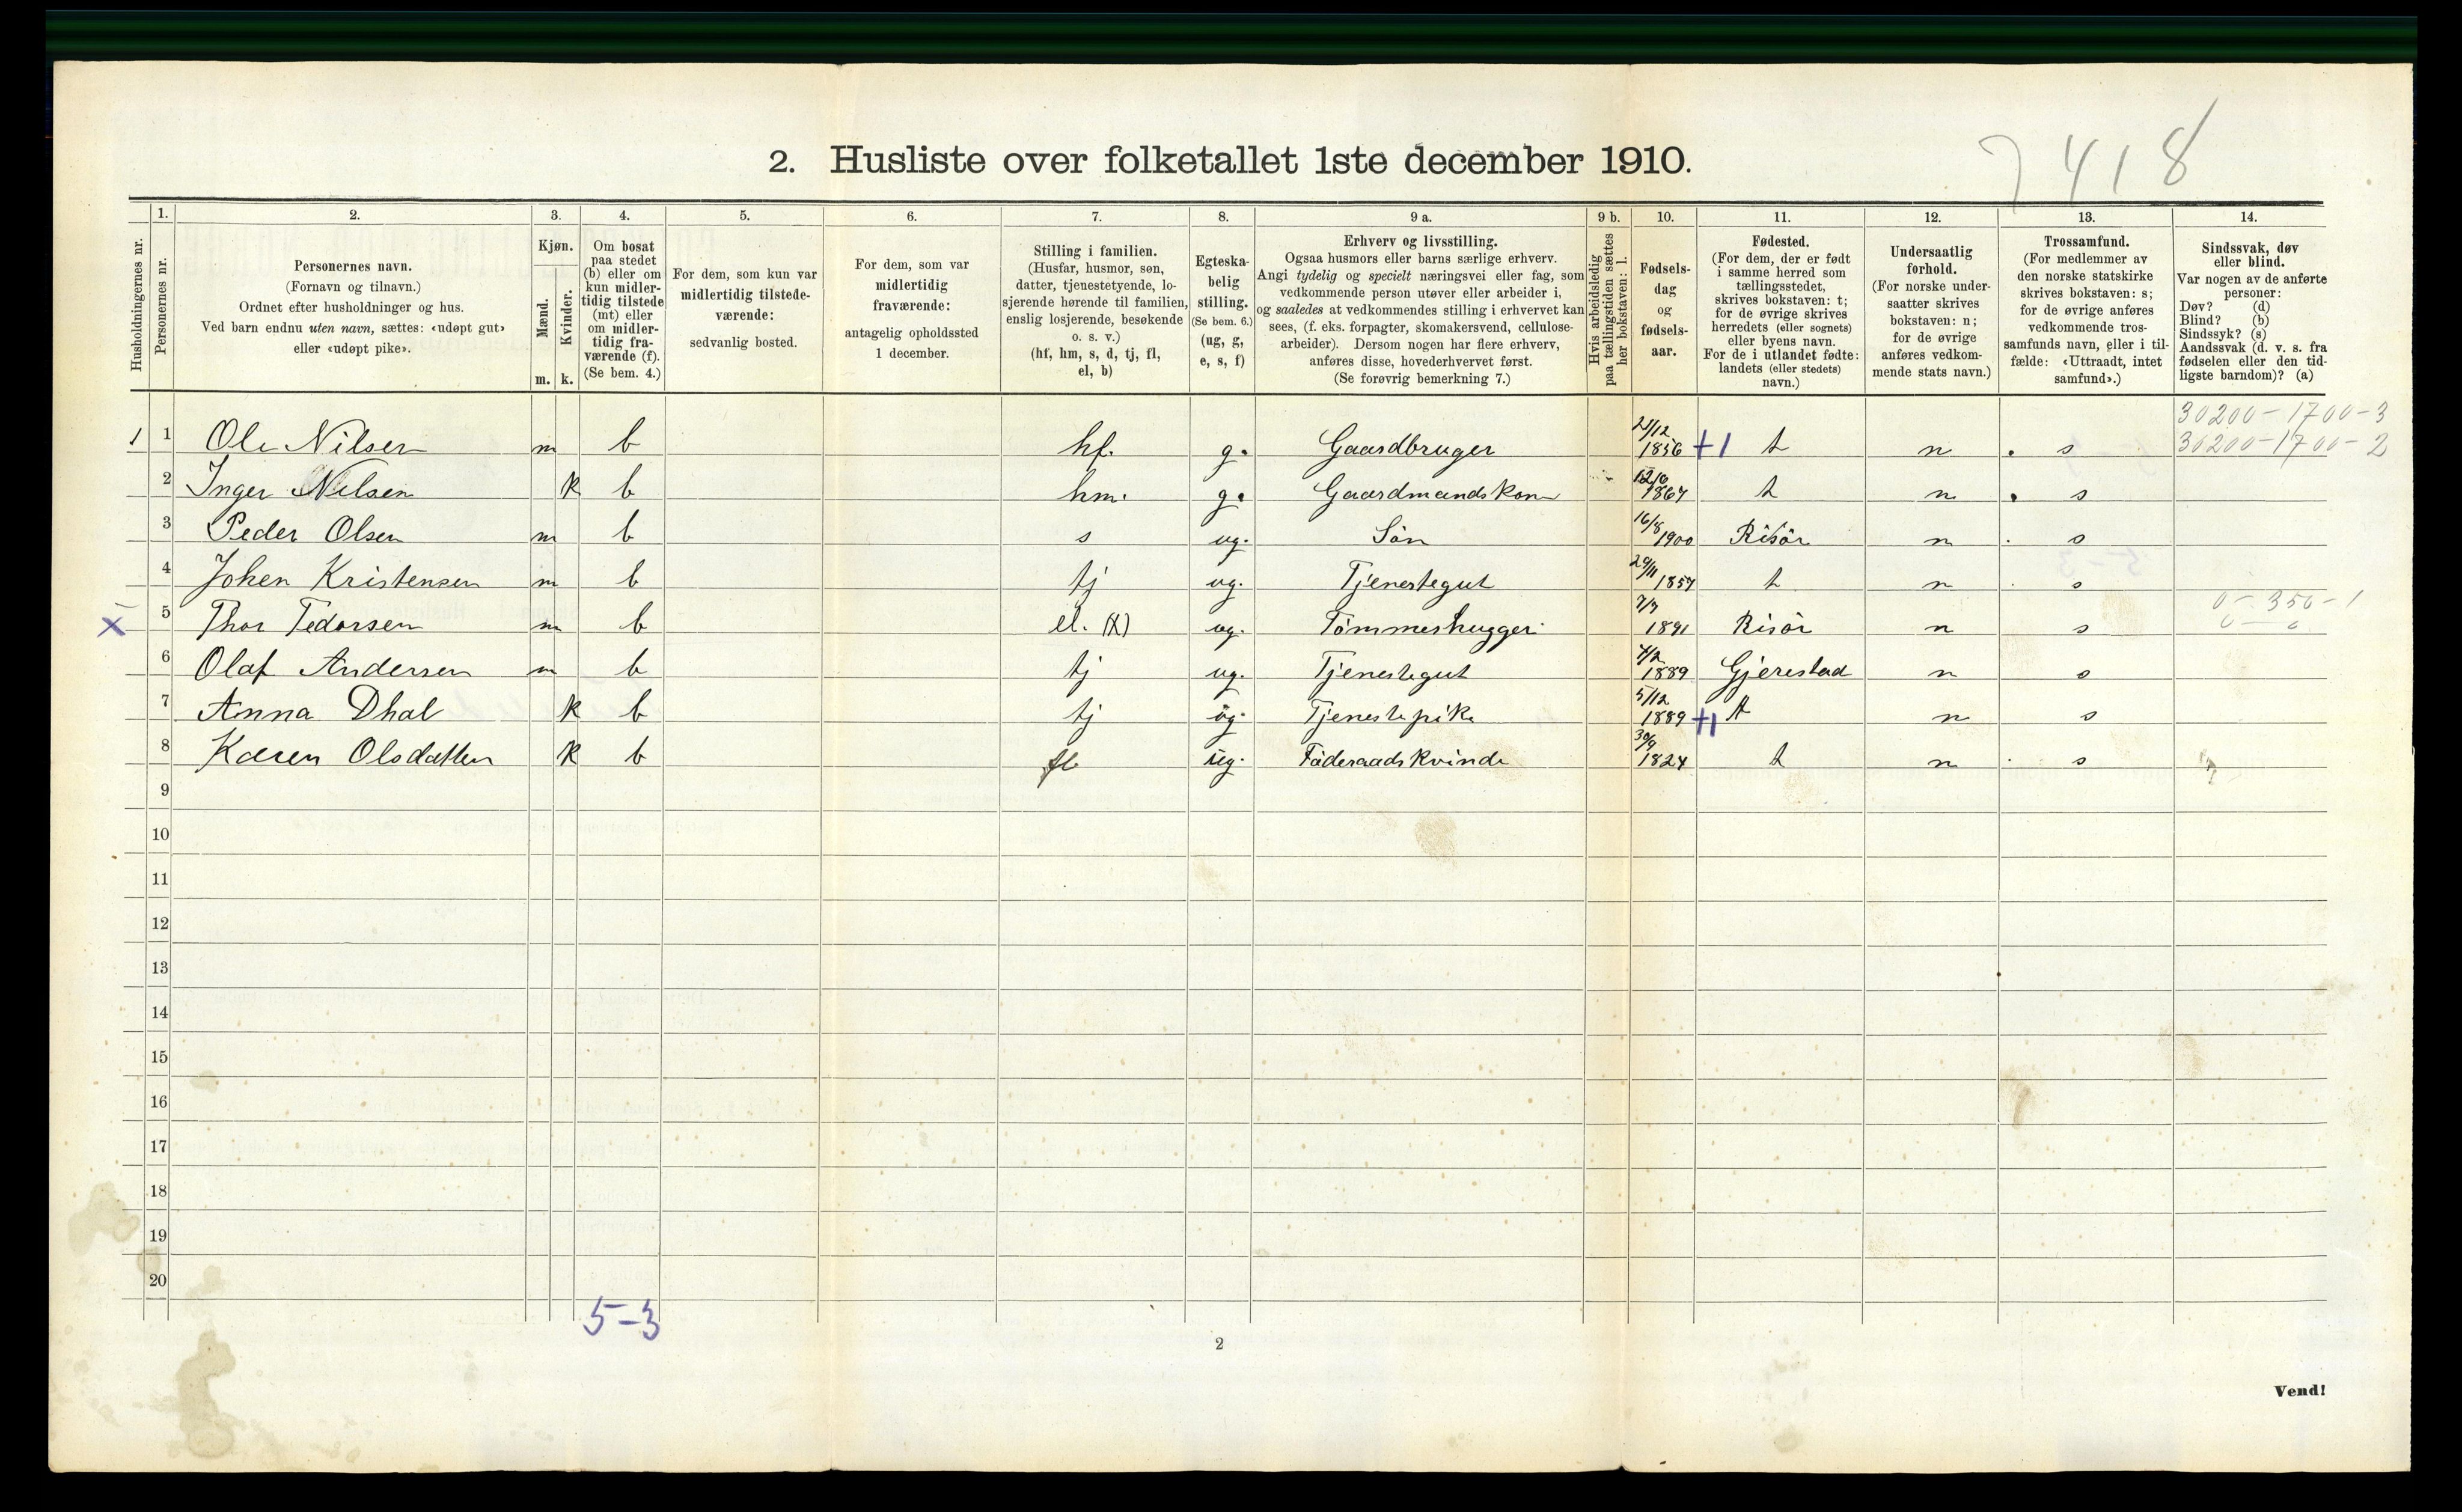 7 418
2. Husliste over folketallet 1ste december 1910.
Husholdningernes nr.
1.
Personernes nr.
2.
Personernes navn.
(Fornavn og tilnavn.)
Ordnet efter husholdninger og hus.
Ved barn endnu uten navn, sættes: «udøpt gut»
eller «udøpt pike».
3.
Kjøn.
Mænd.
Kvinder.
m. k.
4.
Om bosat
paa stedet
(b) eller om
kun midler-
tidig tilstede
(mt) eller
om midler-
tidig fra-
værende (f).
(Se bem. 4.)
5.
For dem, som kun var
midlertidig tilstede-
værende:
sedvanlig bosted.
6.
For dem, som var
midlertidig
fraværende:
antagelig opholdssted
1 december.
7.
Stilling i familien.
(Husfar, husmor, søn,
datter, tjenestetyende, lo-
sjerende hørende til familien,
enslig losjerende, besøkende
o. s. v.)
(hf, hm, s, d, tj, fl,
el, b)
8.
Egteska-
belig
stilling.
(Se bem. 6.)
(ug, g,
e, s, f)
9 a.
Erhverv og livsstilling.
Ogsaa husmors eller barns særlige erhverv.
Angi tydelig og specielt næringsvei eller fag, som
vedkommende person utøver eller arbeider i,
og saaledes at vedkommendes stilling i erhvervet kan
sees, (f. eks. forpagter, skomakersvend, cellulose-
arbeider). Dersom nogen har flere erhverv,
anføres disse, hovederhvervet først.
(Se forøvrig bemerkning 7.)
9 b.
Hvis arbeidsledig
paa tællingstiden sættes
her bokstaven: l.
10.
Fødsels-
dag
og
fødsels-
aar.
11.
Fødested.
(For dem, der er født
i samme herred som
tællingsstedet,
skrives bokstaven: t;
for de øvrige skrives
herredets (eller sognets)
eller byens navn.
For de i utlandet fødte:
landets (eller stedets)
navn.)
12.
Undersaatlig
forhold.
(For norske under-
saatter skrives
bokstaven: n;
for de øvrige
anføres vedkom-
mende stats navn.)
13.
Trossamfund.
(For medlemmer av
den norske statskirke
skrives bokstaven: s;
for de øvrige anføres
vedkommende tros-
samfunds navn, eller i til-
fælde: «Uttraadt, intet
samfund».)
14.
Sindssvak, døv
eller blind.
Var nogen av de anførte
personer:
Døv? (d)
Blind? (b)
Sindssyk? (s)
Aandssvak (d. v. s. fra
fødselen eller den tid-
ligste barndom)? (a)
30200-1700-3
1 1 Ole Nilsen m b hf. g. Gaardbruger 1856 +1 t n s 30200-1700-2
2 Inger Nilsen k b hm. g. Gaardmandskon 1867 t n s
3 Peder Olsen m b s ug. Sön 16/8 1900 Risör n s
4 Johen Kristensen m b tj ug. Tjenestegut 29/11 1857 t n s
X 5 Thor Tedorsen m b el. (X) ug. Tömmerhugger 7/7 1891 Risör n s 0-350-1
6 Olaf Andersen m b tj ug. Tjenestegut 4/2 1889 Gjerestad n s
7 Anna Dhal k b tj ög. Tjenestepike 5/12 1889 +1 t n s
8 Karen Olsdatter k b fl ug. Föderaadskvinde 30/9 1824 t n s
9
10
11
12
13
14
15
16
17
18
19
20
5-3
2
Vend!